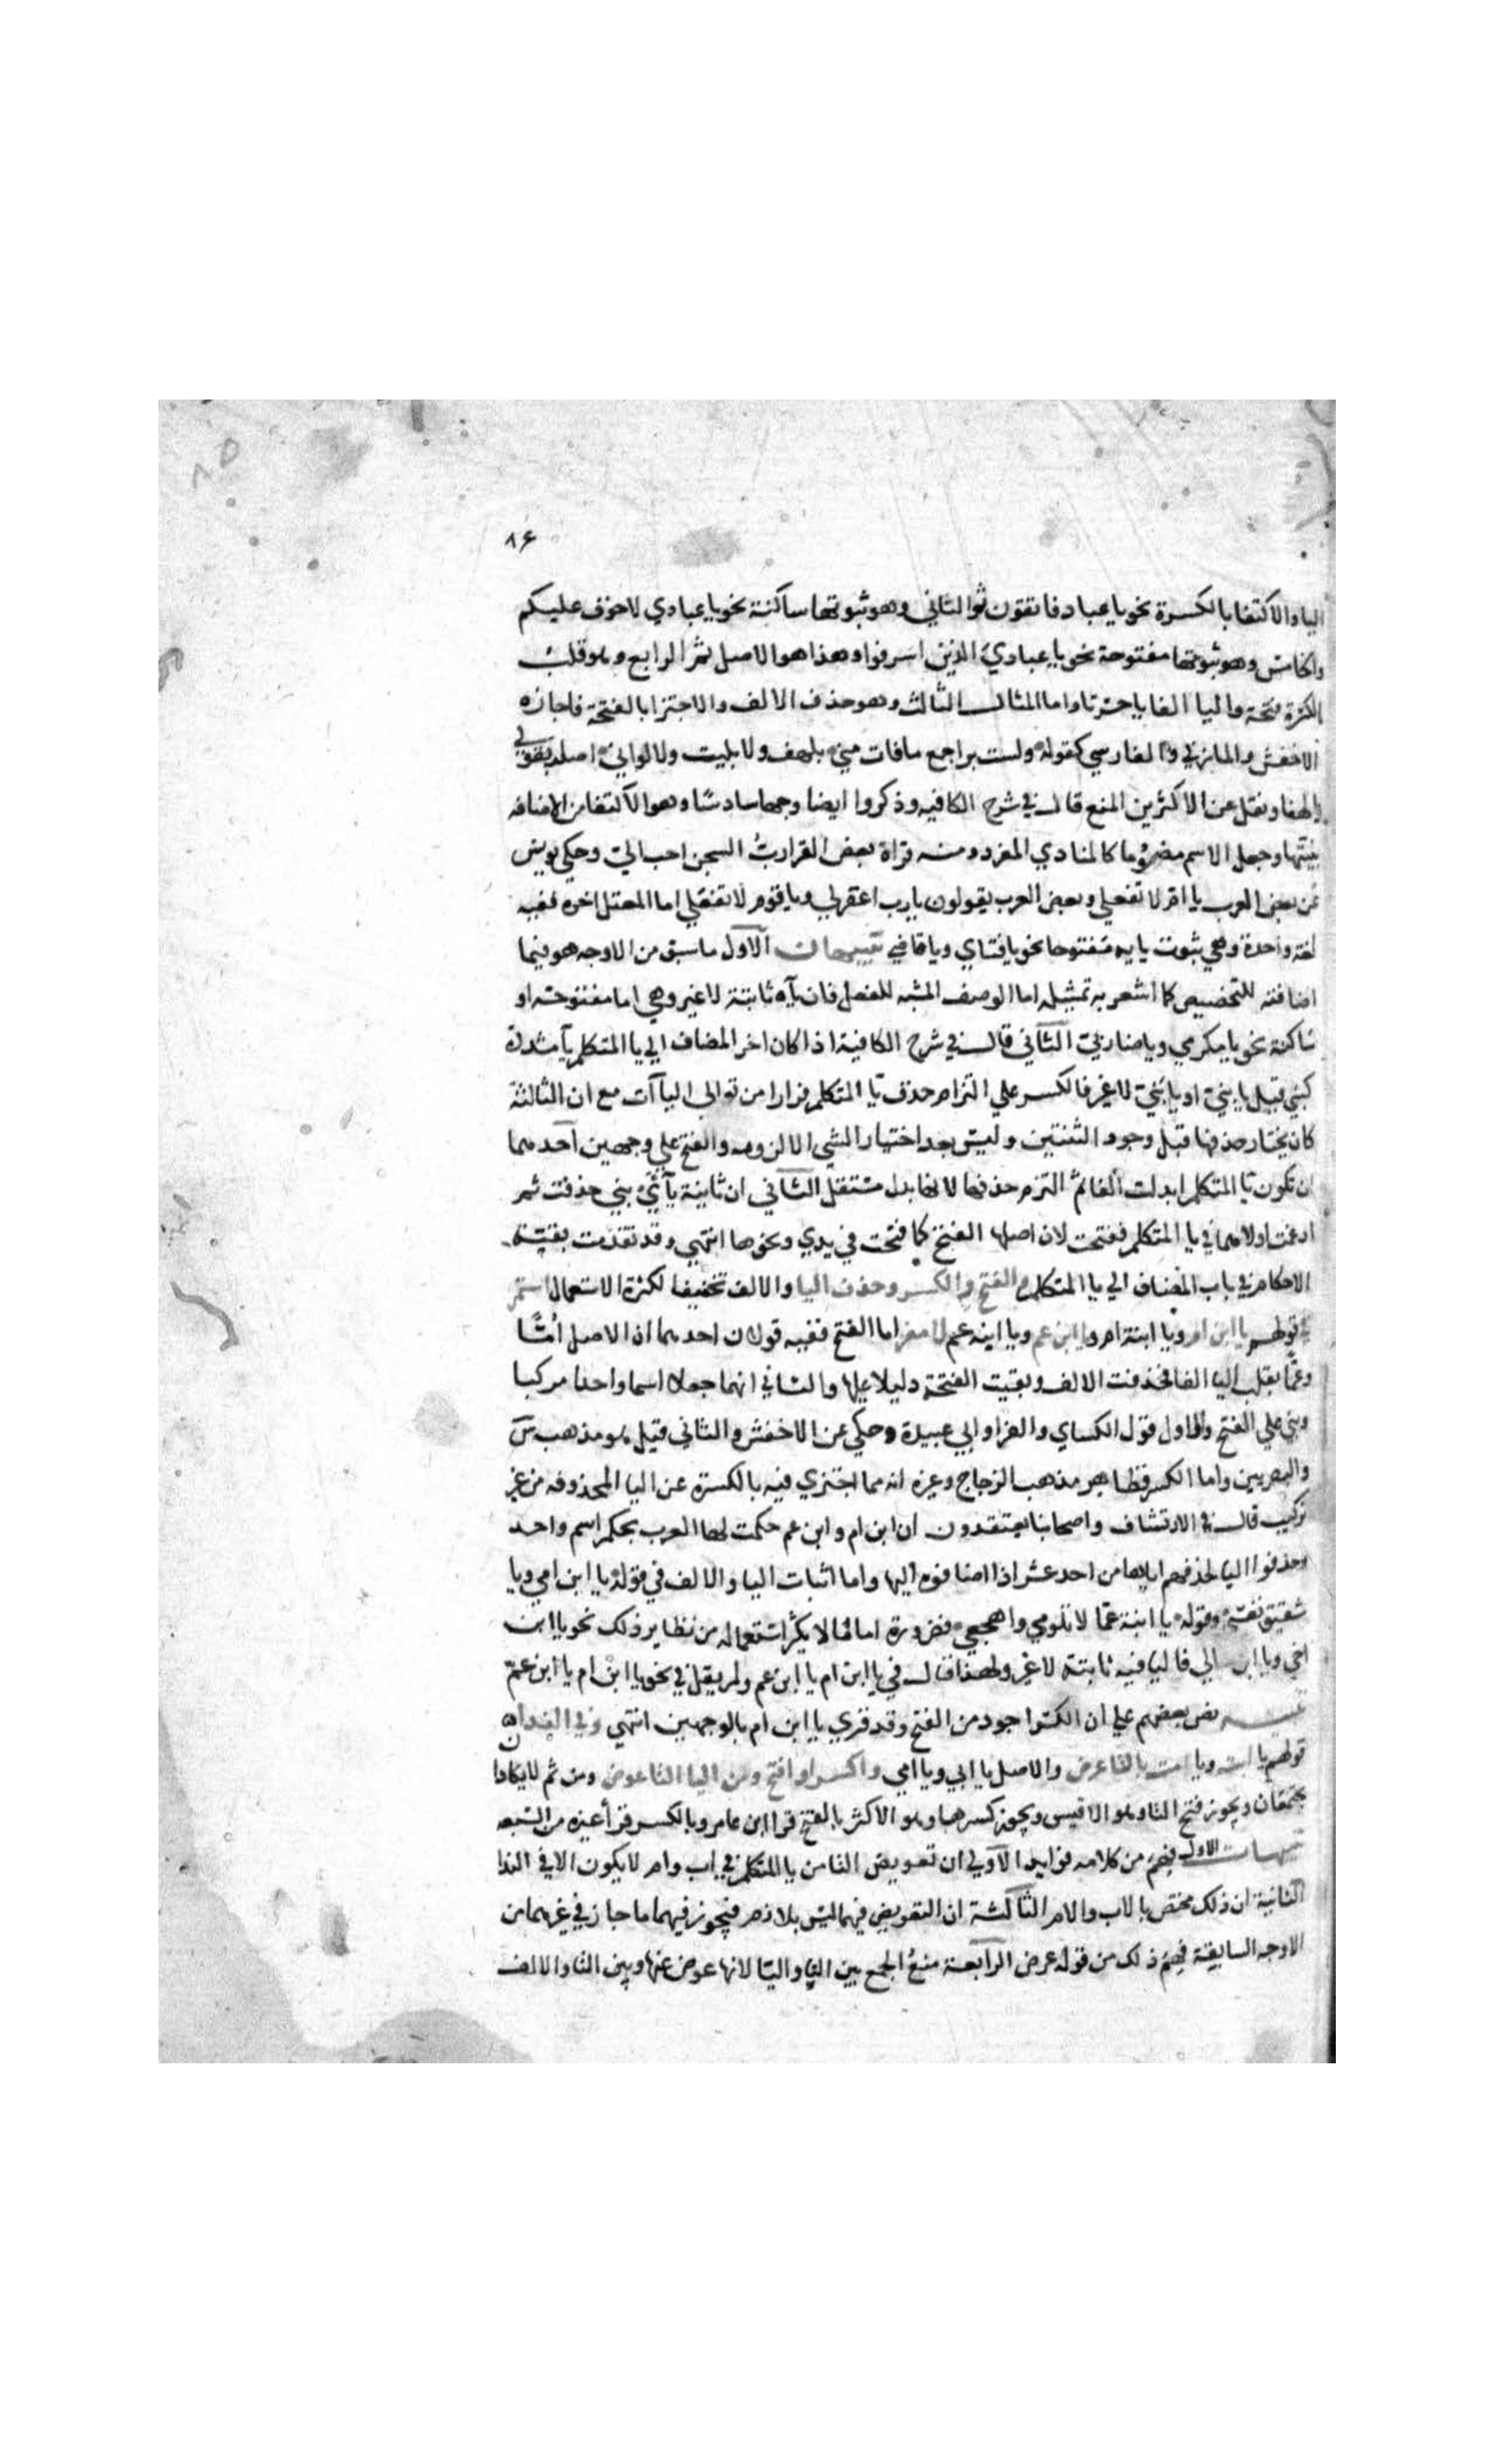 ٨٤
اليا والاكتفا بالكسرة نحو يا عباد فاتقون ثم الثاني وهو ثبوتها ساكنة نحو يا عبادي لا خوف عليكم
والخامس وهو ثبوتها مفتوحة نحو يا عبادي الذين اسرفوا وهذا هو الاصل ثم الرابع وهو قلب
الكسرة فتحة واليا الفا يا حسرتا واما المثال الثالث وهو حذف الالف والاجتزا بالفتحة فاجازه
الاخفش والمازني والفارسي كقوله ولست براجع ما فات مني بلهف ولا بليت ولا لواني اصله بقولي
يا لهفا ونقل عن الاكثرين المنع قال في شرح الكافيه وذكروا ايضا وجها سادسا وهو الاكتفا من الاضافه
بنيتها وجعل الاسم مضموما كالمنادي المفرد ومنه قراة بعض القرا رب السجن احب الي وحكي يونس
عن بعض العرب يا ام لا تفعلي وبعض العرب يقولون يا رب اغفر لي ويا قوم لا تفعلي اما المعتل اخره ففيه
لغة واحدة وهي ثبوت يايه مفتوحا نحو يا فتاي ويا قاضي تنبيهات الاول ما سبق من الاوجه هو فيما
اضافته للتخصيص كما اشعر به تمثيله اما الوصف المشبه للفعل فان ياه ثابتة لا غير وهي اما مفتوحة او
ساكنة نحو يا مكرمي ويا ضاربي الثاني قال في شرح الكافية اذا كان اخر المضاف الي يا المتكلم يا مشددة
كبني قيل يا بني او يا بني لا غير فالكسر علي التزام حذف يا المتكلم فرارا من توالي الياآت مع ان الثالثة
كان يختار حذفها قبل وجود الثنتين وليس بعد اختيار الشي الا لزومه والفتح علي وجهين احدهما
ان تكون يا المتكلم ابدلت الفا ثم التزم حذفها لانها بدل مستثقل الثاني ان ثانية ياي بني حذفت ثم
ادغمت اولاهما في يا المتكلم ففتحت لان اصلها الفتح كما فتحت في يدي ونحوها انتهي وقد تقدمت بقية
الاحكام في باب المضاف الي يا المتكلم والفتح والكسر وحذف اليا والالف تخفيفا لكثرة الاستعمال استمر
في قولهم يا ابن ام ويا ابنة ام ويا ابن عم ويا ابنه عم لا مفر اما الفتح ففيه قولان احدهما ان الاصل اما
وعما بقلب اليا الفا فحذفت الالف وبقيت الفتحة دليلا عليها والثاني انهما جعلا اسما واحدا مركبا
وبني علي الفتح والاول قول الكساي والفرا وابي عبيدة وحكي عن الاخفش والثاني قيل هو مذهب س
والبصريين واما الكسر فظاهر مذهب الزجاج وغيره انه مما اجتزي فيه بالكسرة عن اليا المحذوفه من غير
تركيب قال في الارتشاف واصحابنا يعتقدون ان ابن ام وابن عم حكمت لها العرب بحكم اسم واحد
وحذفوا اليا كحذفهم اياها من احد عشر اذا اضافوه اليها واما اثبات اليا والالف في قوله يا ابن امي ويا
شقيق نفسي وقوله يا ابنة عما لا تلومي واهجعي فضرورة اما ما لا يكثر استعماله من نظاير ذلك نحو يا ابن
اخي ويا ابن خالي فاليا فيه ثابتة لا غير ولهذا قال في يا ابن ام يا ابن عم ولم يقل في نحو يا ابن ام يا ابن عم
تنبيه نص بعضهم علي ان الكسر اجود من الفتح وقد قري يا ابن ام بالوجهين انتهي وفي الندا
قولهم يا ابت ويا امت بالتا عرض والاصل يا ابي ويا امي واكسر او افتح ومن اليا التا عوض ومن ثم لا يكادا
يجتمعان ويجوز فتح التا وهو الاقيس ويجوز كسرها وهو الاكثر بالفتح قرا ابن عامر وبالكسر قرا غيره من السبعه
تنبيهات الاول فهم من كلامه فوايد الاولي ان تعويض التا من يا المتكلم في اب وام لا يكون الا في الندا
الثانية ان ذلك مختص بالاب والام الثالثة ان التعويض فيهما ليس بلازم فيجوز فيهما ما جاز في غيرهما من
الاوجه السابقة فهم ذلك من قوله عرض الرابعة منع الجمع بين اليا والتا لانها عوض عنها وبين التا والالف